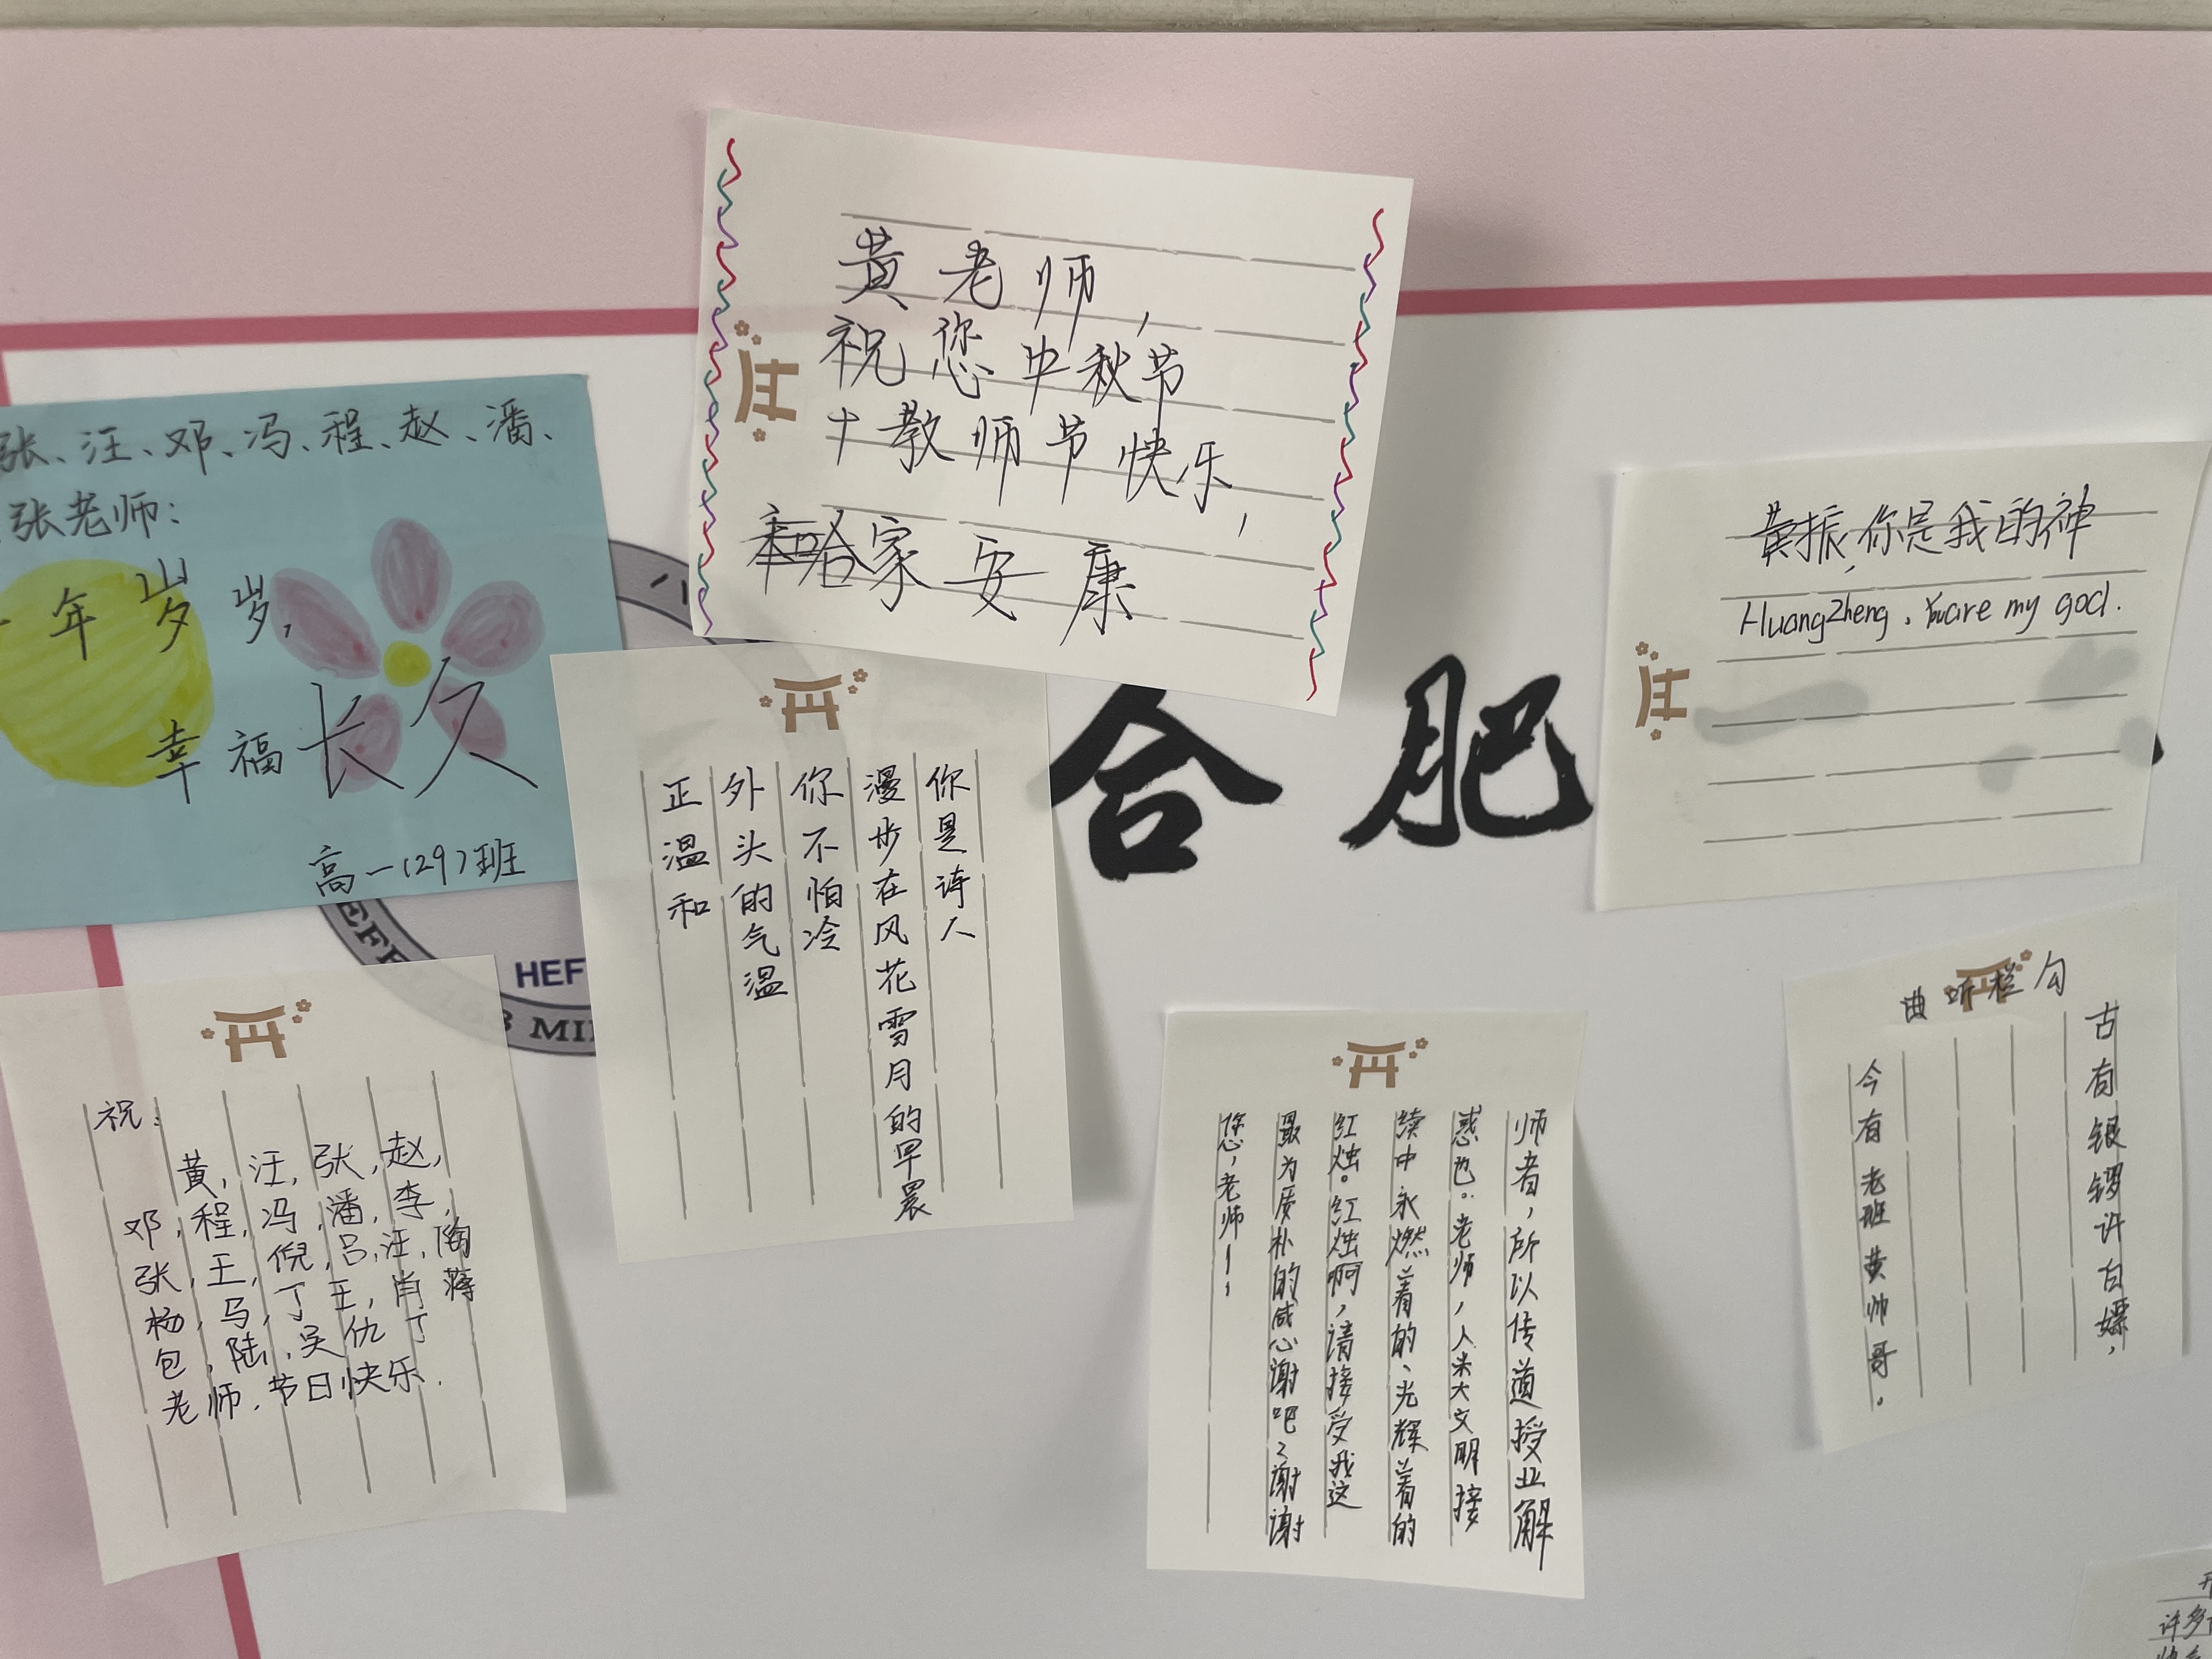 张、汪、邓、冯、程、赵、潘、
张老师:
年岁岁,
幸福长久
高一(29)班
黄老师,
祝您中秋节
+教师节快乐,
家安康
黄振,你是我的神
HuangZheng, You are my god.
合肥
HEF
你是诗人
漫步在风花雪月的早晨
你不怕冷
外头的气温
正温和
祝:
黄,汪,张,赵,
邓,程,冯,潘,李,
张,王,倪,吕,汪,陶
杨,马,丁,王,肖,蒋
包,陆,吴,仇,丁
老师,节日快乐.
师者,所以传道授业解
惑也。老师,人类文明接
续中永燃着的、光辉着的
红烛。红烛啊,请接受我这
最为质朴的感谢吧~谢谢
您,老师!!
勾栏听曲
古有银锣许白嫖,
今有老班黄帅哥.
许多